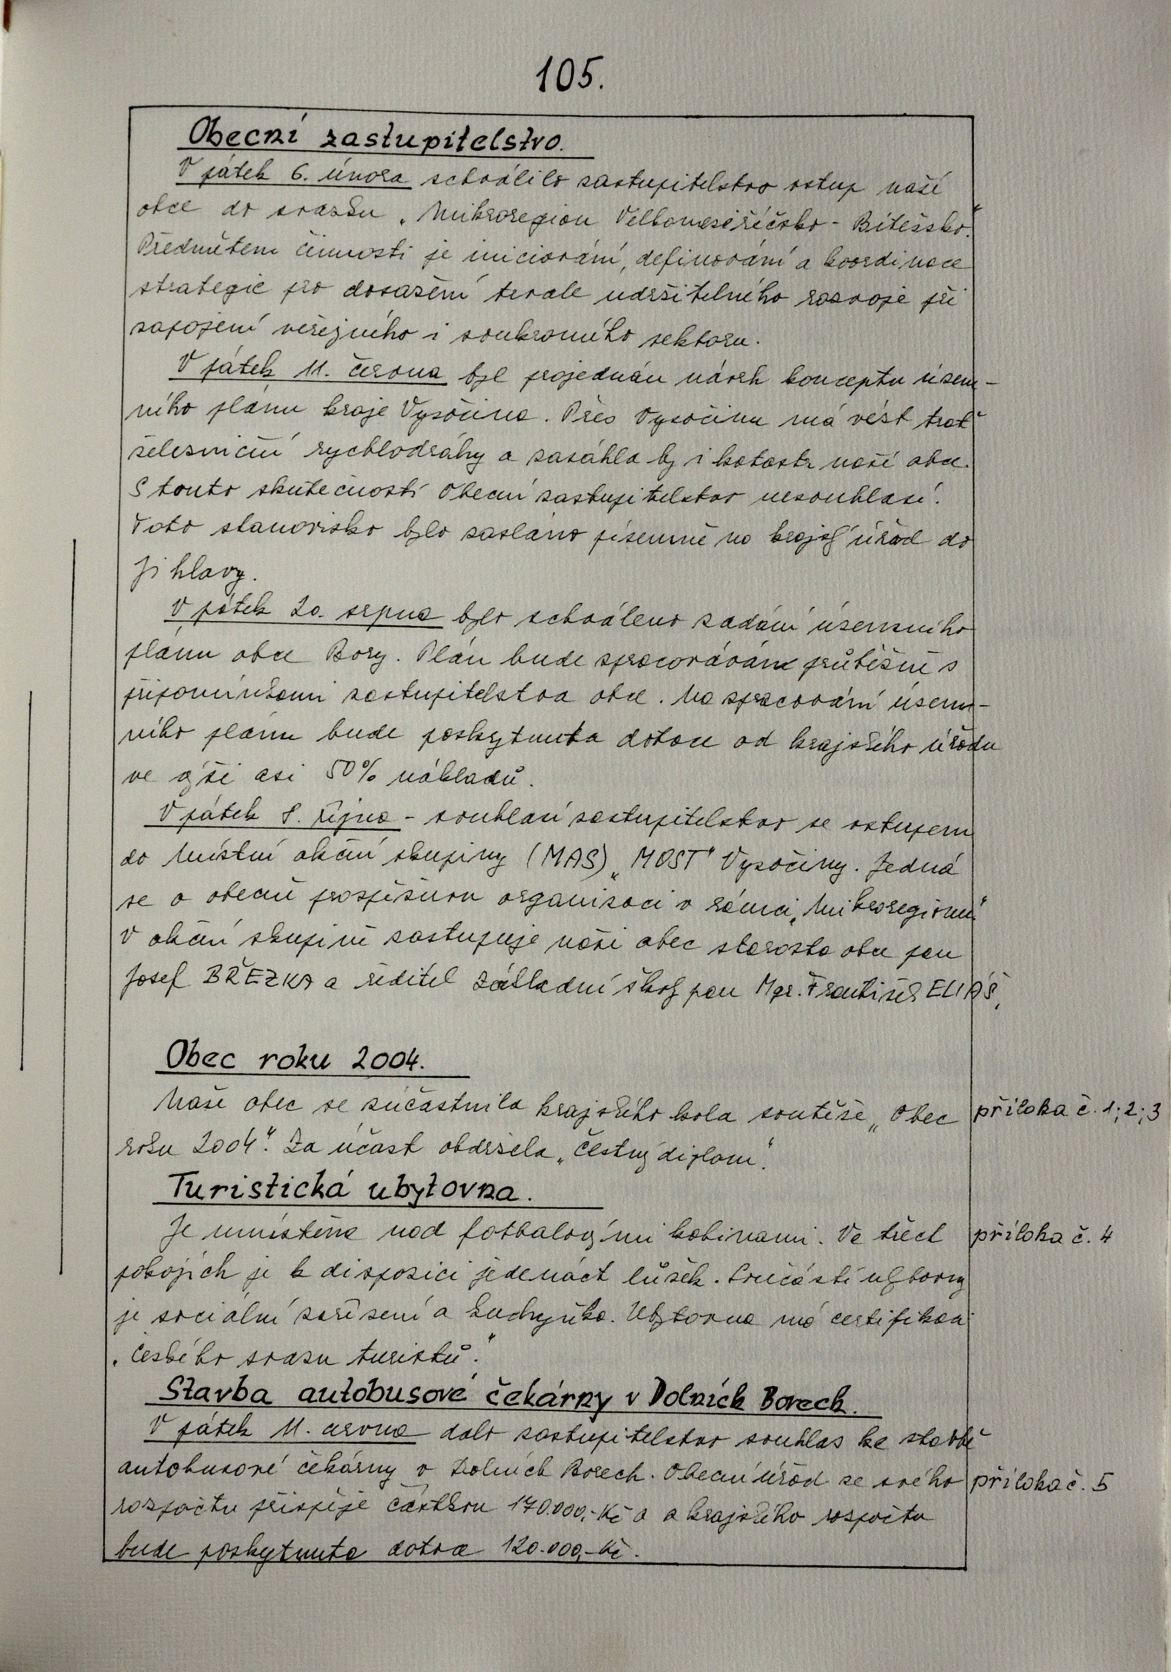 105.
Obecní zastupitelstvo.
V pátek 6. února schválilo zastupitelstvo vstup naší
obce do svazku „Mikroregion Velkomeziříčsko - Bítešsko."
Předmětem činnosti je iniciování, definování a koordinace
strategie pro dosažení trvale udržitelného rozvoje při
zapojení veřejného i soukromého sektoru.
V pátek 11. června byl projednán návrh konceptu územ-
ního plánu kraje Vysočina. Přes Vysočinu má vést trať
železniční rychlodráhy a zasáhla by i katastr naší obce.
S touto skutečností Obecní zastupitelstvo nesouhlasí.
Toto stanovisko bylo zasláno písemně na krajský úřad do
Jihlavy.
V pátek 20. srpna bylo schváleno zadání územního
plánu obce Bory. Plán bude zpracováván průběžně s
připomínkami zastupitelstva obce. Na zpracování územ-
ního plánu bude poskytnuta dotace od krajského úřadu
ve výši asi 50% nákladů.
V pátek 8. října - souhlasí zastupitelstvo se vstupem
do Místní akční skupiny (MAS) „MOST" Vysočiny. Jedná
se o obecně prospěšnou organizaci v rámci „Mikroregionu"
V akční skupině zastupuje naši obec starosta obce pan
Josef BŘEZKA a ředitel Základní školy pan Mgr. František ELIÁŠ.
Obec roku 2004.
Naše obec se zúčastnila krajského kola soutěže „Obec příloha č. 1; 2; 3
roku 2004". Za účast obdržela „Čestný diplom".
Turistická ubytovna.
Je umístěna nad fotbalovými kabinami. Ve třech příloha č. 4
pokojích je k dispozici jedenáct lůžek. Součástí ubytovny
je sociální zařízení a kuchyňka. Ubytovna má certifikaci
„Českého svazu turistů."
Stavba autobusové čekárny v Dolních Borech.
V pátek 11. června dalo zastupitelstvo souhlas ke stavbě
autobusové čekárny v Dolních Borech. Obecní úřad ze svého příloha č. 5
rozpočtu přispěje částkou 170.000,- Kč a z krajského rozpočtu
bude poskytnuta dotace 120.000,- Kč.